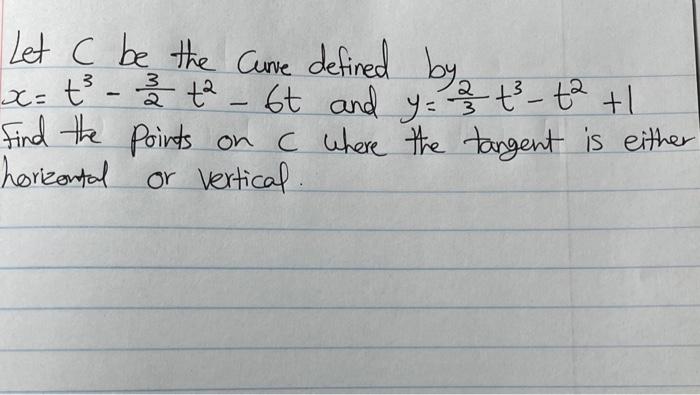 Let C be the Curve defined by
x = t³ - 3/2 t² - 6t and y = 2/3 t³ - t² + 1
Find the Points on C where the tangent is either
horizontal or vertical.